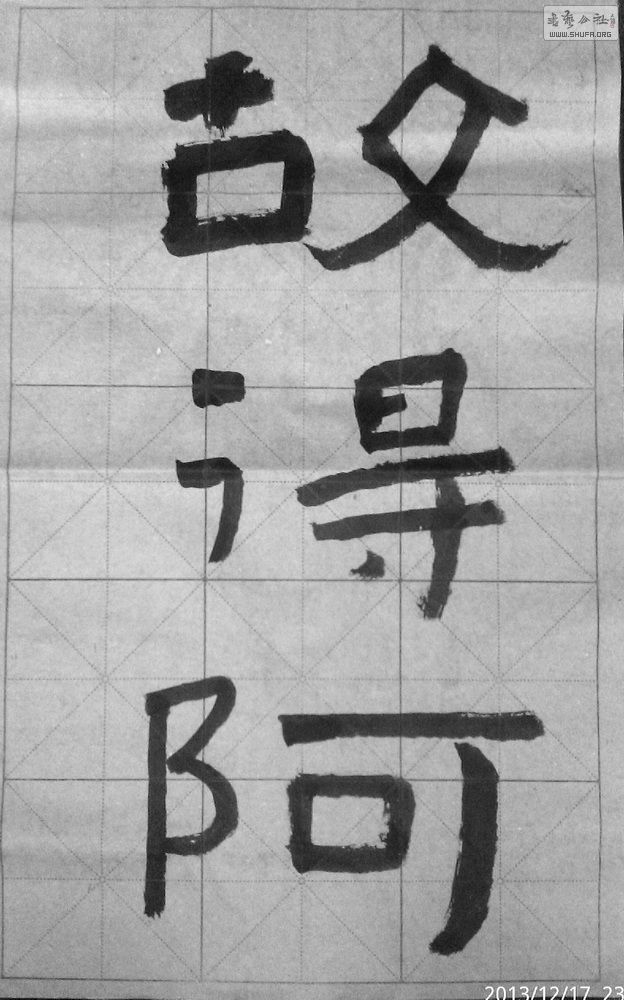 故
得
阿
书艺公社
WWW.SHUFA.ORG
2013/12/17 23